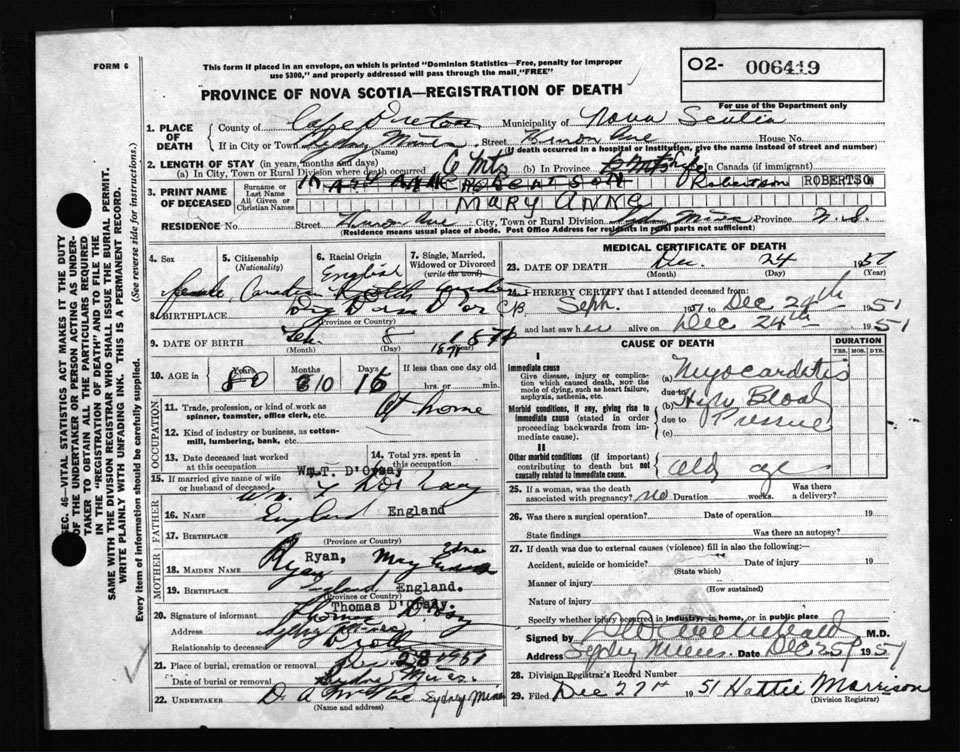 FORM 6
This form if placed in an envelope, on which is printed "Dominion Statistics—Free, penalty for improper
use $300," and properly addressed will pass through the mail "FREE"
PROVINCE OF NOVA SCOTIA—REGISTRATION OF DEATH
O2- 006419
For use of the Department only
1. PLACE OF DEATH
County of Cape Breton Municipality of Nova Scotia
If in City or Town Sydney Mines Street Ave House No.
(Name) (If death occurred in a hospital or institution, give the name instead of street and number)
2. LENGTH OF STAY (in years, months and days)
(a) In City, Town or Rural Division where death occurred 6 Mts (b) In Province Life In Canada (if immigrant)
3. PRINT NAME OF DECEASED
Surname or Last Name ROBERTSON Robertson ROBERTSO
All Given or Christian Names MARY ANNE
RESIDENCE No. Street Ave City, Town or Rural Division Sydney Mines Province N.S.
(Residence means usual place of abode. Post Office Address for residents in rural parts not sufficient)
4. Sex
5. Citizenship (Nationality)
6. Racial Origin
7. Single, Married, Widowed or Divorced (write the word)
female Canadian English
8. BIRTHPLACE C B
(Province or Country)
9. DATE OF BIRTH 8 1871
(Month) (Day) 1871
10. AGE in Years Months Days If less than one day old
80 10 16 hrs. or min.
OCCUPATION
11. Trade, profession, or kind of work as spinner, teamster, office clerk, etc. At home
12. Kind of industry or business, as cotton-mill, lumbering, bank, etc.
13. Date deceased last worked at this occupation
14. Total yrs. spent in this occupation
15. If married give name of wife or husband of deceased
Wm.T. D'Orsay
FATHER
16. NAME Wm. T
17. BIRTHPLACE England England
(Province or Country)
MOTHER
18. MAIDEN NAME Ryan, Mary Edna
Ryan
19. BIRTHPLACE England England.
(Province or Country)
20. Signature of informant Thomas D'Orsay.
Address Sydney Mines
Relationship to deceased
21. Place of burial, cremation or removal
Date of burial or removal Dec 28 1951
Sydney Mines.
22. UNDERTAKER D. A Sydney Mines
(Name and address)
MEDICAL CERTIFICATE OF DEATH
23. DATE OF DEATH Dec. 24 1951
(Month) (Day) (Year)
24. I HEREBY CERTIFY that I attended deceased from:
Sept. 1951 to Dec 24th 1951
and last saw her alive on Dec 24th 1951
CAUSE OF DEATH
DURATION
YRS. MOS. DYS.
I
Immediate cause
Give disease, injury or complication which caused death, NOT the mode of dying, such as heart failure, asphyxia, asthenia, etc.
(a) Myocarditis
due to
Morbid conditions, if any, giving rise to immediate cause (stated in order proceeding backwards from immediate cause).
(b) High Blood
due to Pressure
(c)
II
Other morbid conditions (if important) contributing to death but not causally related to immediate cause.
old age
25. If a woman, was the death associated with pregnancy? no Duration weeks. Was there a delivery?
26. Was there a surgical operation? Date of operation 19
State findings Was there an autopsy?
27. If death was due to external causes (violence) fill in also the following:—
Accident, suicide or homicide? Date of injury 19
(State which)
Manner of injury
(How sustained)
Nature of injury
Specify whether injury occurred in industry, in home, or in public place
Signed by M.D.
Address Sydney Mines. Date Dec 25 1951
28. Division Registrar's Record Number
29. Filed Dec 27th 1951 Hattie Morrison
(Division Registrar)
SEC. 46—VITAL STATISTICS ACT MAKES IT THE DUTY
OF THE UNDERTAKER OR PERSON ACTING AS UNDER-
TAKER TO OBTAIN ALL THE PARTICULARS REQUIRED
IN THE "REGISTRATION OF DEATH" AND TO FILE THE
SAME WITH THE DIVISION REGISTRAR WHO SHALL ISSUE THE BURIAL PERMIT.
WRITE PLAINLY WITH UNFADING INK. THIS IS A PERMANENT RECORD.
Every item of information should be carefully supplied. (See reverse side for instructions.)